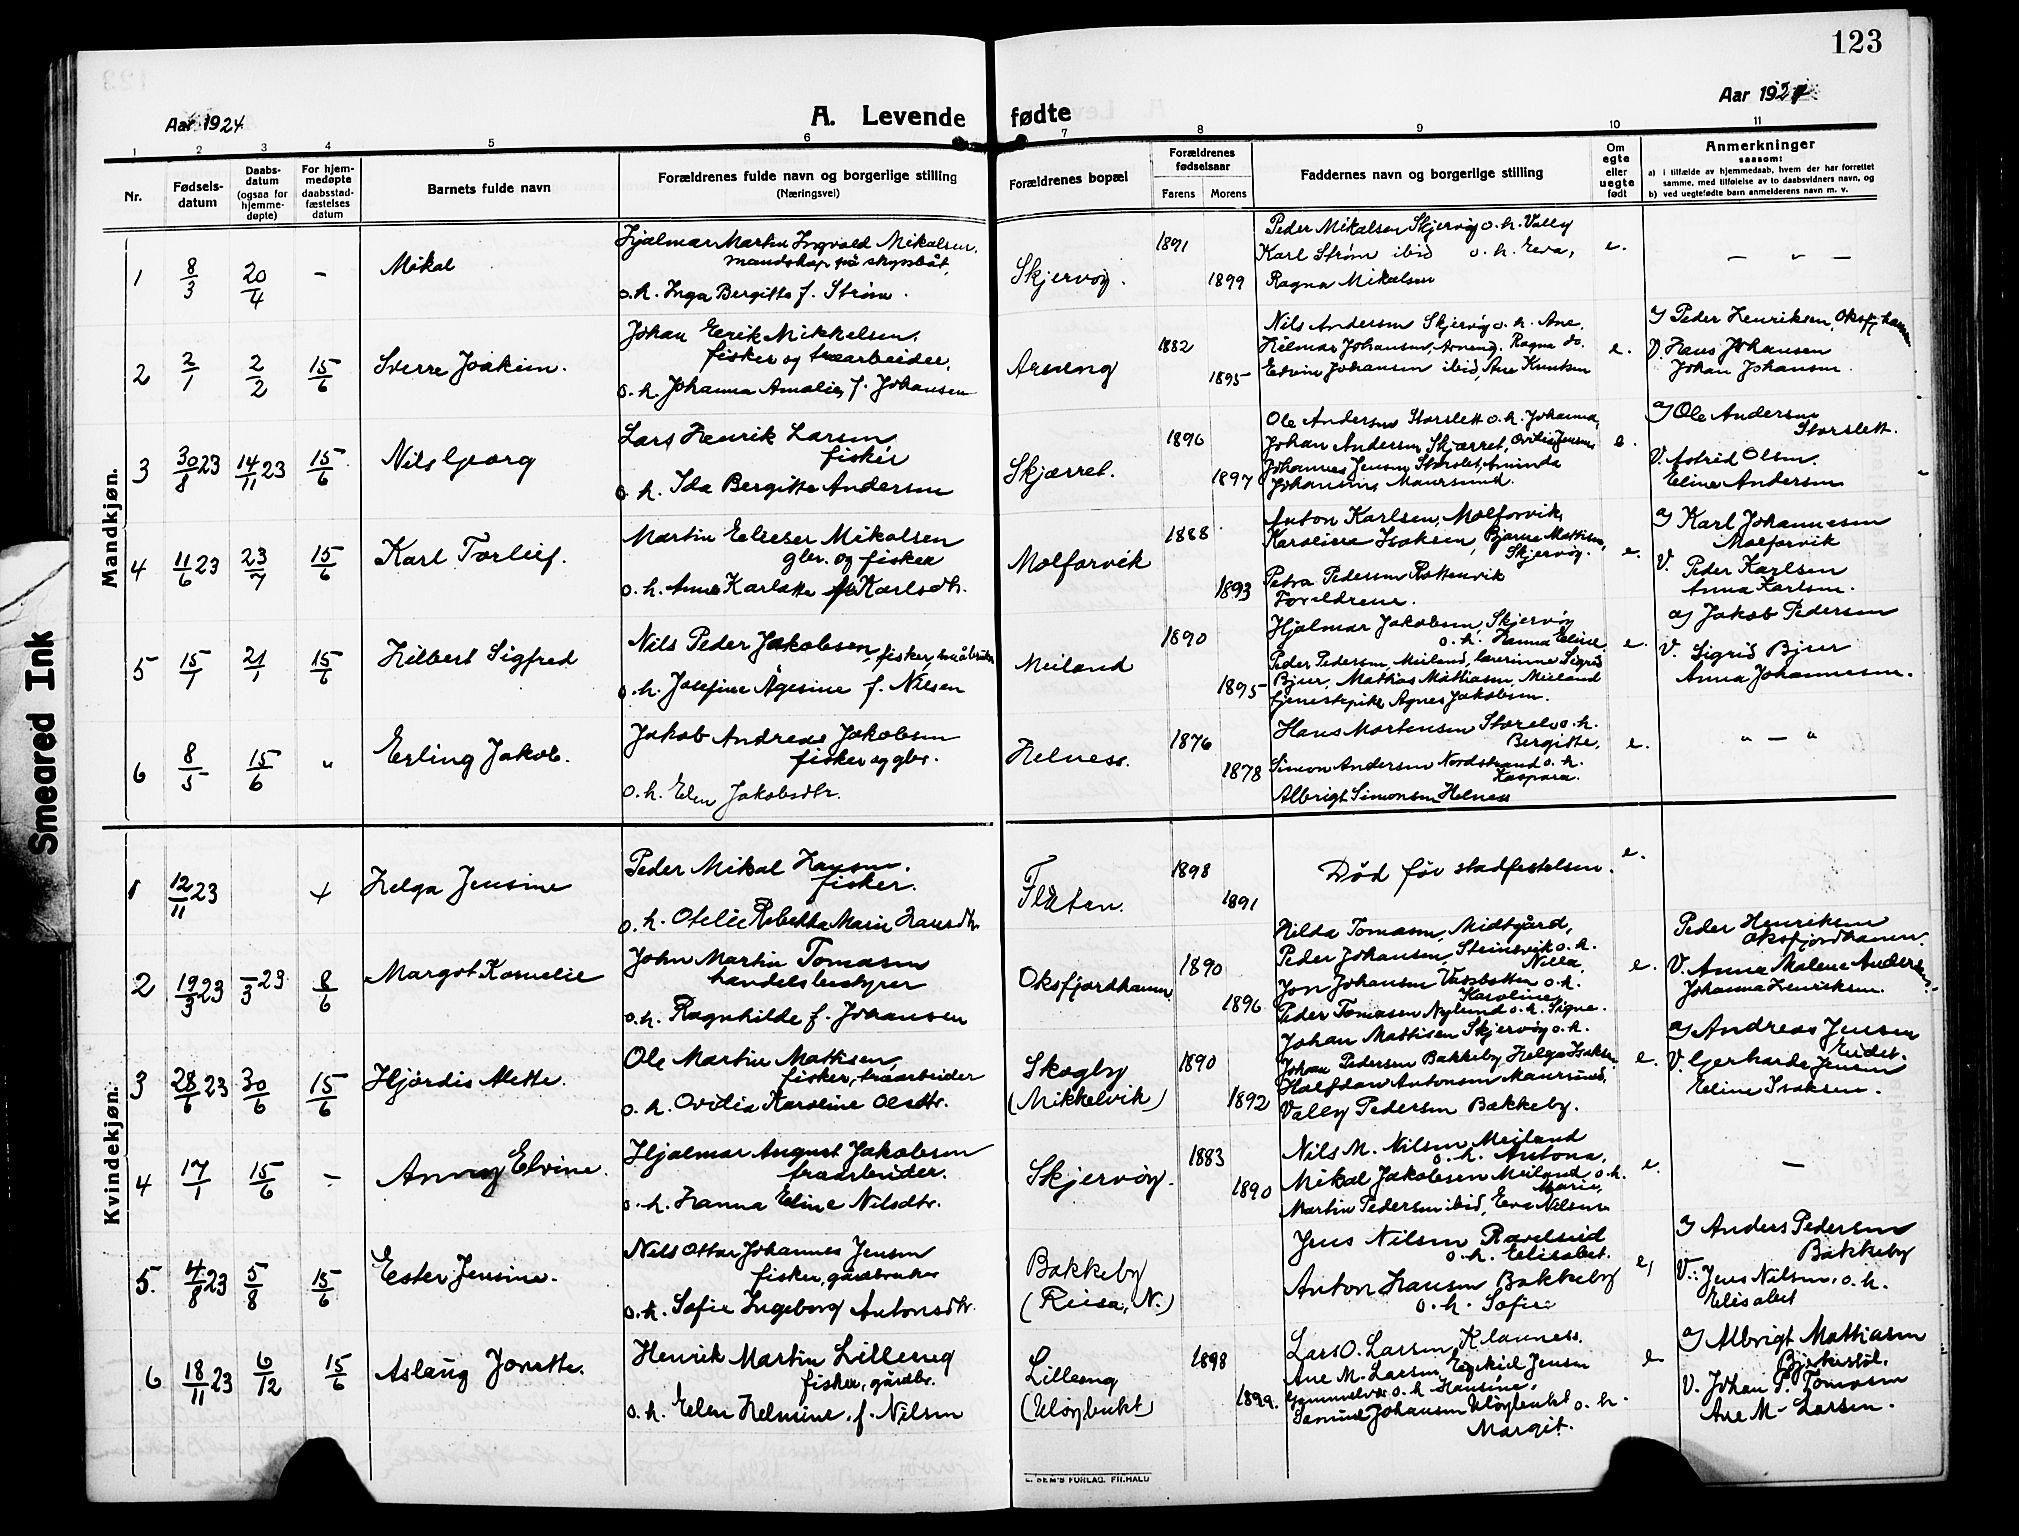 123
Aar 1924
A. Levende fødte
Aar 1924
1 2 3 4 5 6 7 8 9 10 11
Nr.
Fødsels-
datum
Daabs-
datum
(ogsaa for
hjemme-
døpte)
For hjem-
medøpte
daabsstad-
fæstelses
datum
Barnets fulde navn
Forældrenes fulde navn og borgerlige stilling
(Næringsvei)
Forældrenes bopæl
Forældrenes
fødselsaar
Farens Morens
Faddernes navn og borgerlige stilling
Om
egte
eller
uegte
født
Anmerkninger
saasom:
a) i tilfælde av hjemmedaab, hvem der har forrettet
samme, med tilføielse av to daabsvidners navn, og
b) ved uegtefødte barn anmelderens navn m. v.
Mandkjøn.
1 8/3 20/4 – Mikal
Hjalmar Martin Ingvald Mikalsen.
mandskap på skyssbåt,
o. h. Inga Bergitte f. Strøm.
Skjervøy. 1891 1899
Peder Mikalsen Skjervøy o. h. Vally
Karl Strøm ibid o. h. Eva,
Ragna Mikalsen
e. – " –
2 2/1 2/2 15/6 Sverre Joakim.
Johan Eerik Mikkelsen.
fisker og træarbeider,
o. h. Johanna Amalie, f. Johansen
Arneng 1882 1895
Nils Andersen Skjervøy o. h. Ane.
Hilmar Johansen, Arneng. Ragna do.
Edvin Johansen ibid, Ane Knutsen
e.
a) Peder Henriksen, Oksfj.hamn
V. Hans Johansen
Johan Johansen.
3 30/8 23 14/11 23 15/6 Nils Georg
Lars Henrik Larsen
fisker
o. h. Ida Bergitte Andersen
Skjærret. 1896 1897
Ole Andersen Storslett o. h. Johanna,
Johan Andersen, Skjærret, Ovilie Jensen
Johannes Jensen Storslet, Aminda
Johansen, Maursund.
e.
a) Ole Andersen
Storslett.
V. Astrid Olsen.
Eline Andersen
4 11/6 23 23/7 15/6 Karl Torleif.
Martin Elieser Mikalsen
gbr. og fisker
o. h. Anna Karlotte Karlsdtr.
Molforvik 1888 1893
Anton Karlsen, Molforvik,
Karoline Isaksen, Bjarne Mattisen,
Skjervøy.
Petra Pedersen Rottenvik
Foreldrene.
e.
a) Karl Johannesen
Molforvik
V. Peder Karlsen
Anna Karlsen.
5 15/1 21/1 15/6 Hilbert Sigfred
Nils Peder Jakobsen, fisker, småbruker
o. h. Josefine Ågesine f. Nilsen
Meiland 1890 1895
Hjalmar Jakobsen, Skjervøy
o. h. Hanna Eline,
Peder Pedersen, Meiland, lærerinne Sigrid
Bjur, Mathias Mathiasen, Meiland
tjenestepike Agnes Jakobsen.
e.
a) Jakob Pedersen
V. Sigrid Bjur
Anna Johannesen.
6 8/5 15/6 " Erling Jakob.
Jakob Andreas Jakobsen
fisker og gbr.
o. h. Elen Jakobsdtr.
Helness. 1876 1878
Hans Mortensen Storel o. h.
Bergitte,
Simon Andersen Nordstrand o. h.
Kaspara.
Albrigt Simonsen Helness
e. " – "
Kvindekjøn.
1 12/11 23 + Helga Jensine
Peder Mikal Hansen.
fisker.
o. h. Otelie Robertha Marie Hansdtr.
Flåten. 1898 1891
Død før stadfestelsen.
e.
2 19/3 23 –/3 23 8/6 Margot Kornelie
John Martin Tomasen
handelsbestyrer
o. h. Ragnhilde f. Johansen
Oksfjordhamn 1890 1896
Hilda Tomasen, Midtgård,
Peder Johansen, Steinsvik o. h.
Nilla,
Jon Johansen Vassbotten o. h.
Karoline,
Peder Tomasen Nylund o. h. Signe.
e.
Peder Henriksen
Oksfjordhamn.
V. Anna Malene Andersen.
Johanna Henriksen.
3 28/6 23 30/6 15/6 Hjørdis Mette.
Ole Martin Mattisen,
fisker, træarbeider
o. h. Ovidia Karoline Olsdtr.
Skogby
(Mikkelvik) 1890 1892
Johan Mattisen Skjervøy o. h.
Johan Pedersen Bakkeby Helga Isaksen
Halfdan Antonsen Maursund,
Vally Pedersen Bakkeby.
e.
a) Andreas Jensen
Eidet.
V. Gerharda Jensen
Eline Isaksen.
4 17/1 15/6 – Anny Elvine.
Hjalmar August Jakobsen
træarbeider.
o. h. Hanna Eline Nilsdtr.
Skjervøy. 1883 1890
Nils M. Nilsen Meiland
o. h. Antona,
Mikal Jakobsen Meiland o. h.
Marie,
Martin Pedersen ibid, Eva Nilsen
e. –
5. 4/8 23 5/8 15/6 Ester Jensine.
Nils Ottar Johannes Jensen
fisker, gårdbruker
o. h. Sofie Ingeborg Antonsdtr.
Bakkeby
(Reisa, N.)
Jens Nilsen Ravelseid
o. h. Elisabet.
Anton Hansen Bakkeby
o. h. Sofie
e,
a) Anders Pedersen
Bakkeby
V. Jens Nilsen, o. h.
Elisabet
6 18/11 23 6/12 15/6 Aslaug Jonette.
Henrik Martin Lilleng
fisker, gårdbr.
o. h. Elen Helmine, f. Nilsen
Lilleng
(Uløybukt) 1898 1899.
Lars O. Larsen, Klauness.
Ane M. Larsen, Esekiel Jensen
o. h. Hansine.
Samuel Johansen Uløybukt o. h.
Margit.
e
a) Albrigt Mattiasen
V. Johan P. Tomasen
Ane M. Larsen.
E. SEM'S FORLAG, FR.HALD
Smeared Ink